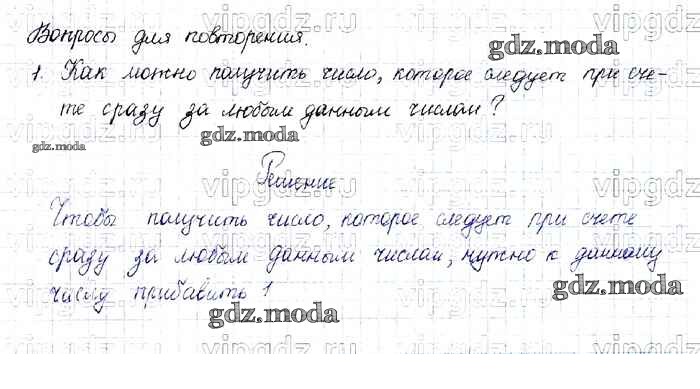 Вопросы для повторения.
1. Как можно получить число, которое следует при сче-
те сразу за любым данным числом?
Решение
Чтобы получить число, которое следует при счете
сразу за любым данным числом, нужно к данному
числу прибавить 1
gdz.moda
gdz.moda
gdz.moda
gdz.moda
gdz.moda